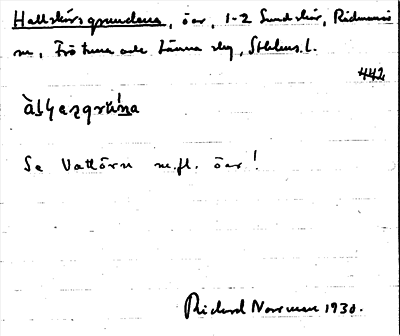 Hallskärsgrundena, öar, 1-2 Sundskär, Rådmansö
sn, Frötuna och Länna skg, Sthlms l.
442
Se Vattörn m.fl. öar!
Rickard Norrman 1930.